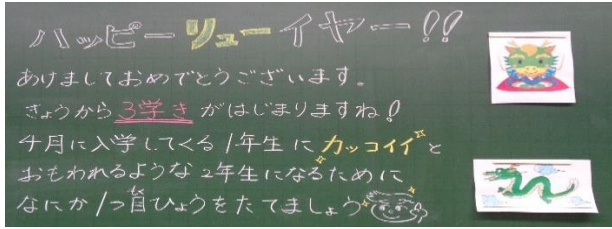 ハッピーリューイヤー!!
あけましておめでとうございます。
きょうから3学きがはじまりますね!
4月に入学してくる1年生にカッコイイと
おもわれるような2年生になるために
なにか1つ目ひょうをたてましょう